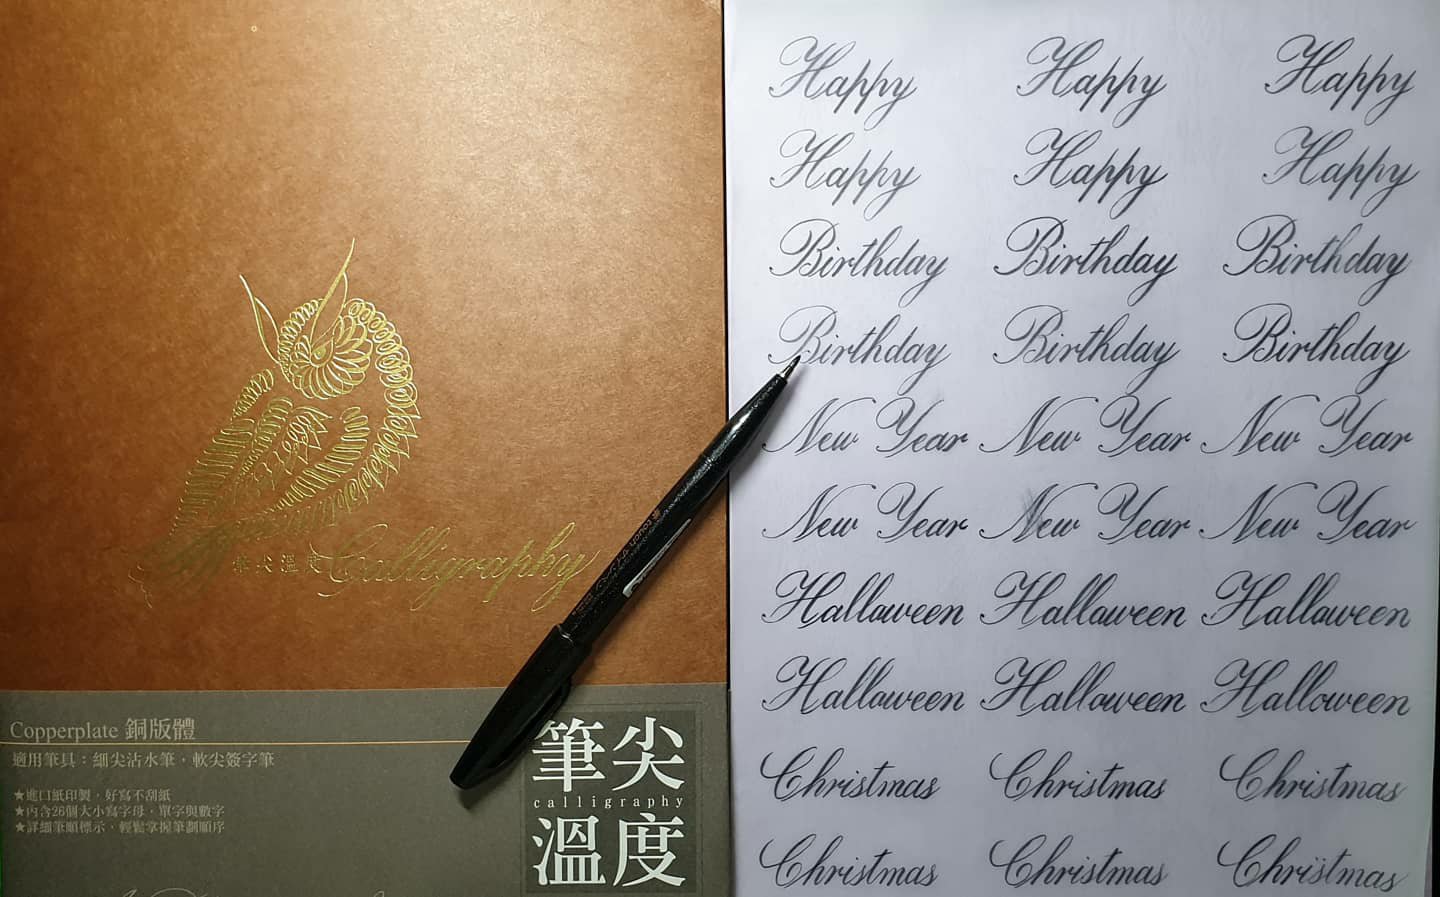 筆尖溫度 Calligraphy
Copperplate 銅版體
適用筆具：細尖沾水筆，軟尖簽字筆
★進口紙印製，好寫不刮紙
★內含26個大小寫字母，單字與數字
★詳細筆順標示，輕鬆掌握筆劃順序
筆尖
calligraphy
溫度
touch
Happy Happy Happy
Happy Happy Happy
Birthday Birthday Birthday
Birthday Birthday Birthday
New Year New Year New Year
New Year New Year New Year
Halloween Halloween Halloween
Halloween Halloween Halloween
Christmas Christmas Christmas
Christmas Christmas Christmas